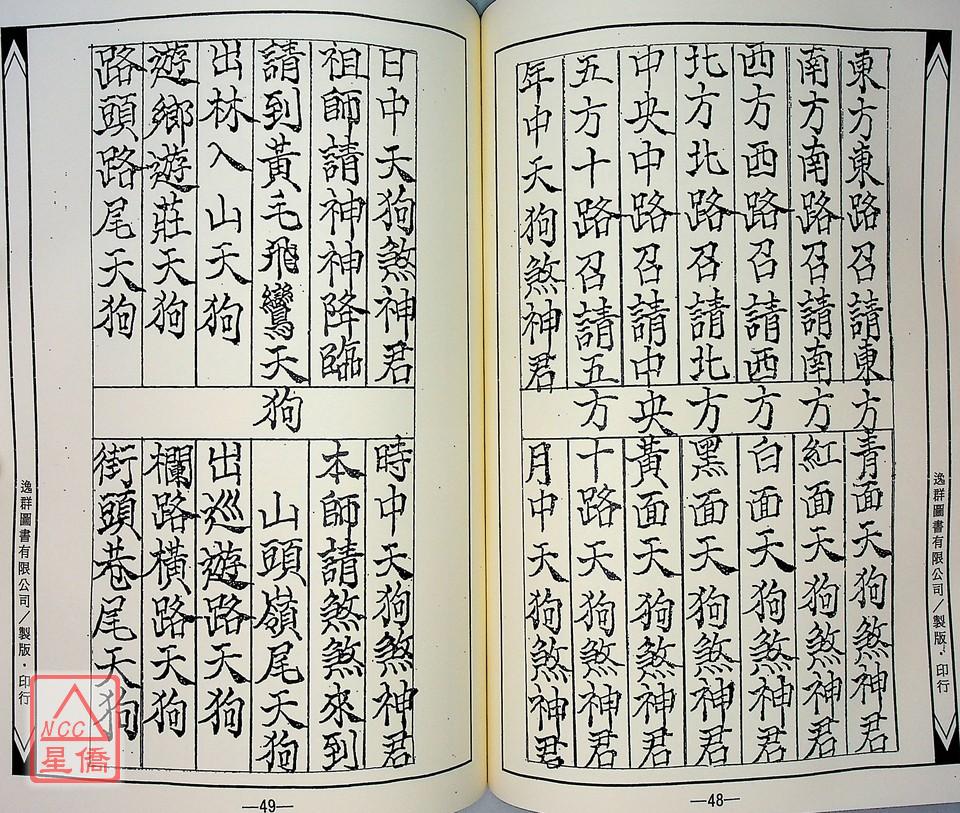 東方東路召請東方青面天狗煞神君
南方南路召請南方紅面天狗煞神君
西方西路召請西方白面天狗煞神君
北方北路召請北方黑面天狗煞神君
中央中路召請中央黃面天狗煞神君
五方十路召請五方十路天狗煞神君
年中天狗煞神君 月中天狗煞神君
逸群圖書有限公司/製版・印行
—48—
日中天狗煞神君 時中天狗煞神君
祖師請神神降臨 本師請煞煞來到
請到黃毛飛鸞天狗 山頭嶺尾天狗
出林入山天狗 出巡遊路天狗
遊鄉遊莊天狗 欄路橫路天狗
路頭路尾天狗 街頭巷尾天狗
逸群圖書有限公司/製版・印行
—49—
NCC
星僑